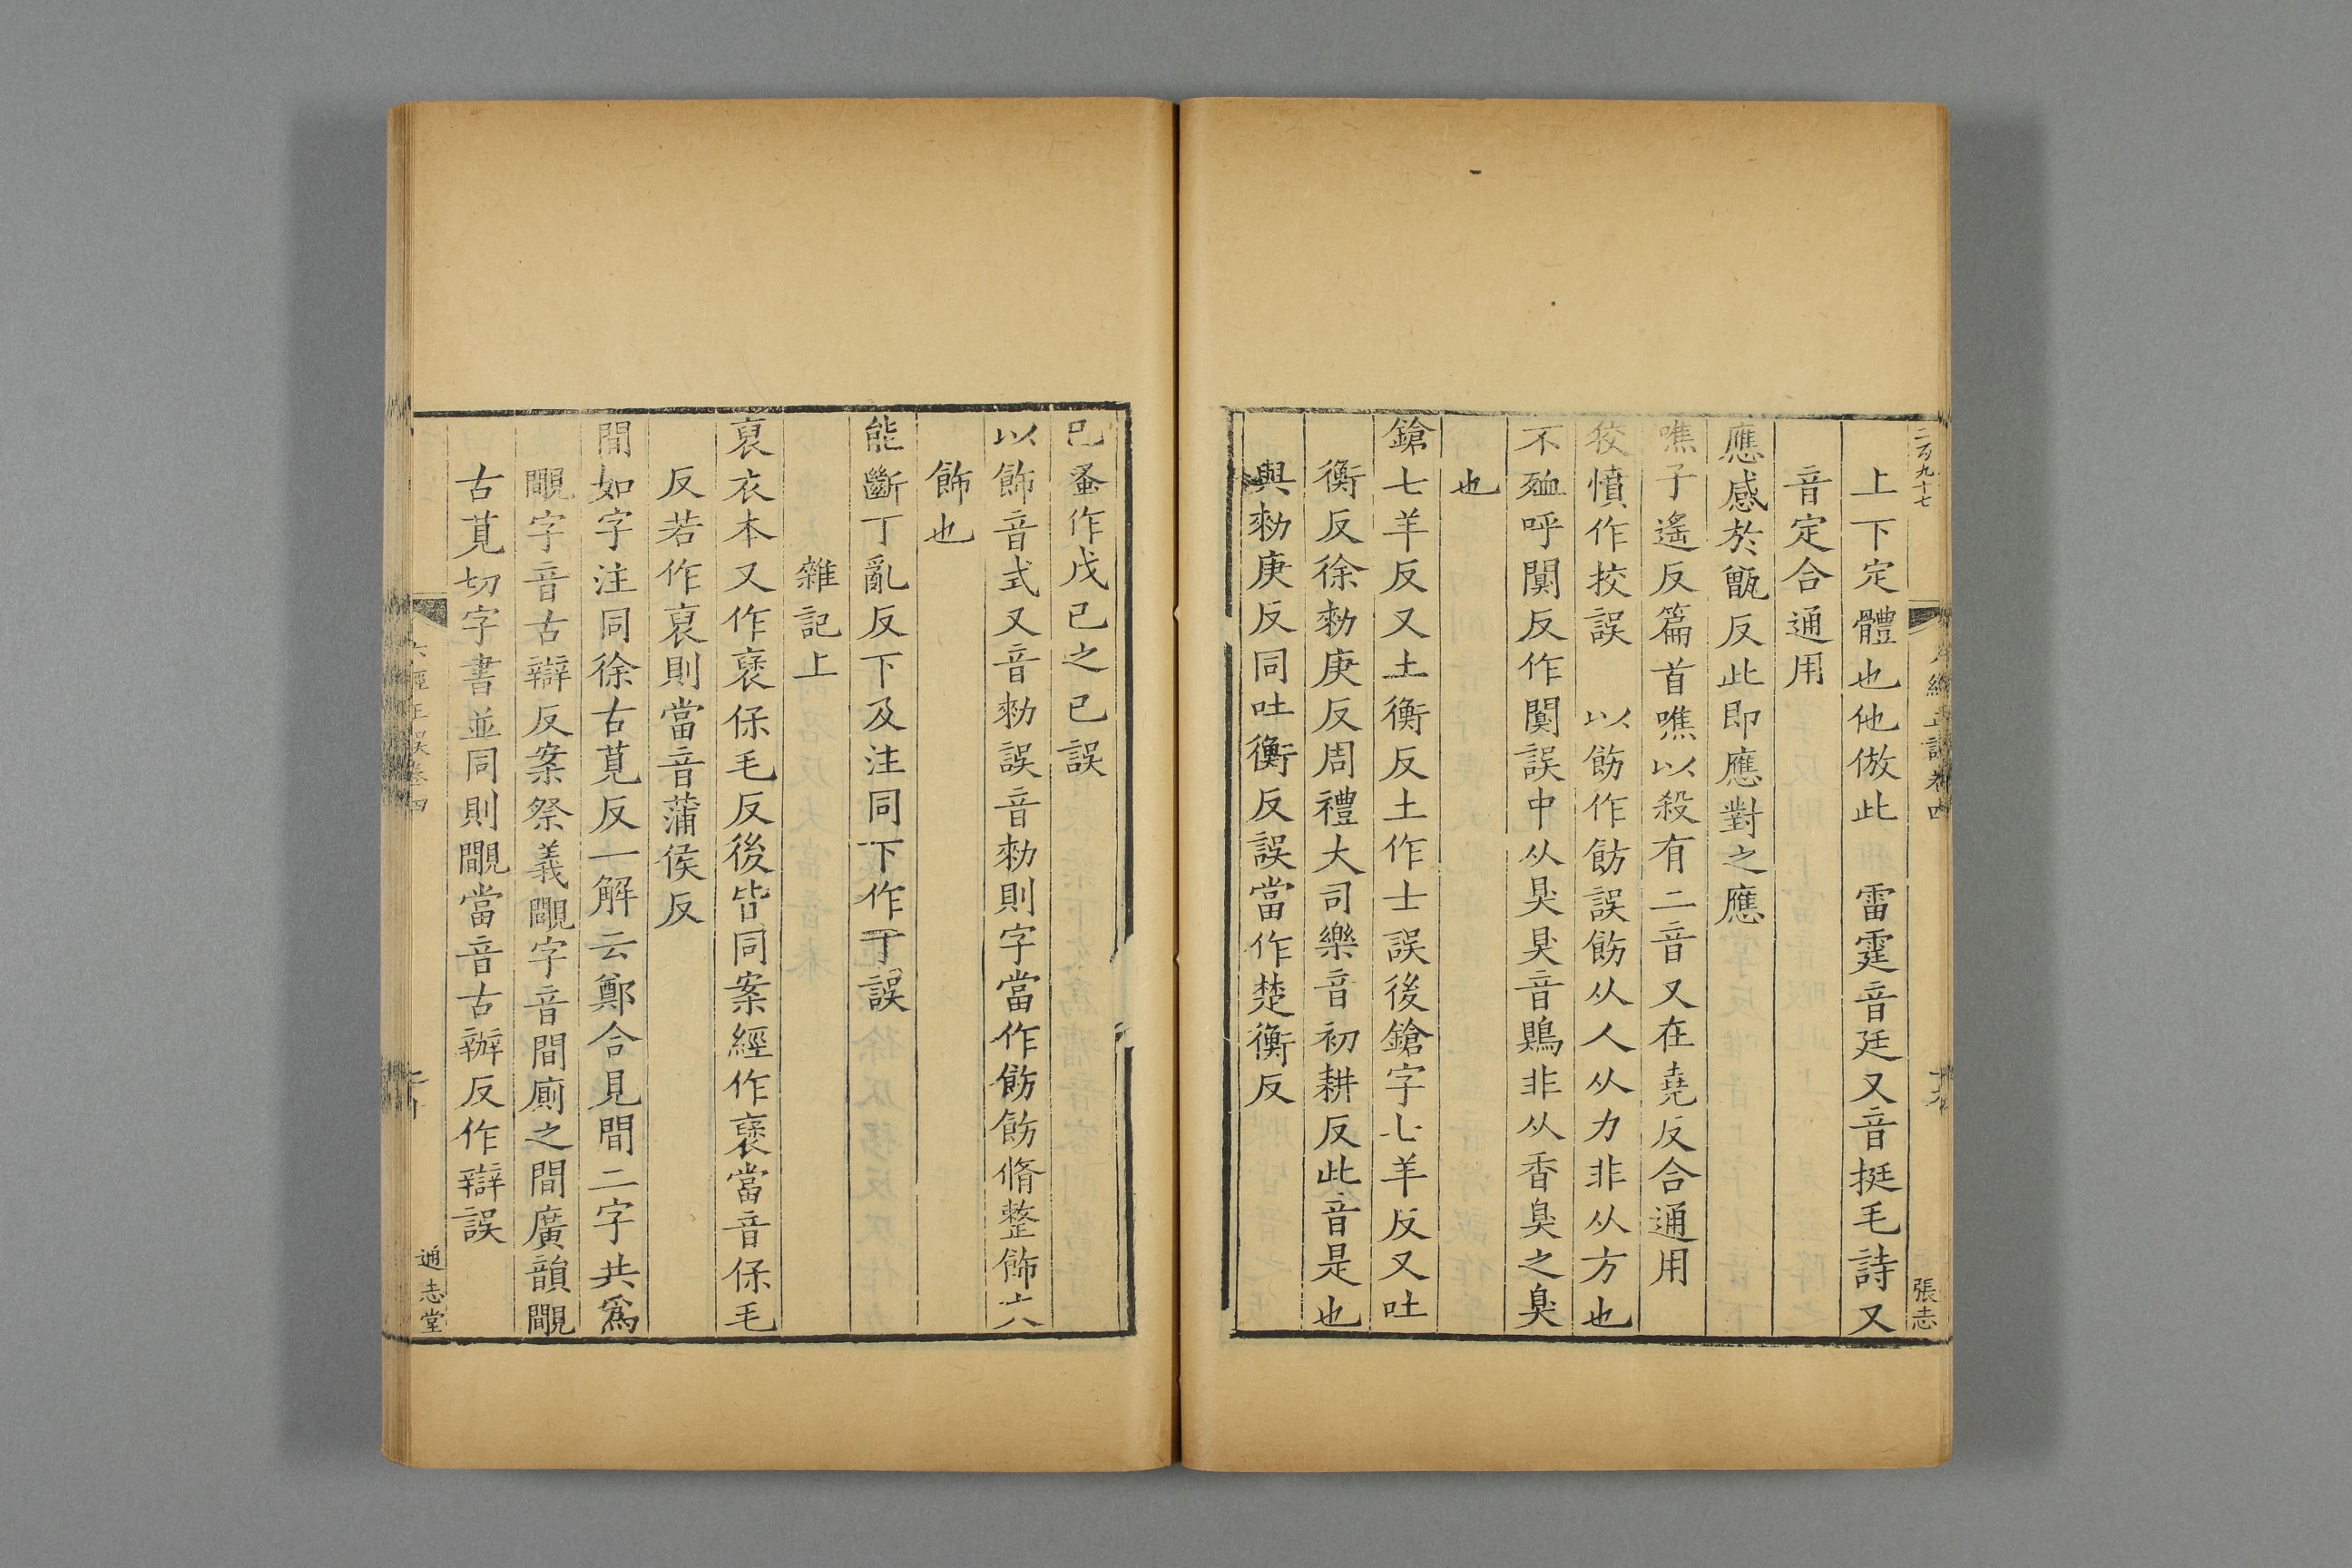 二百九十七
張志
上下定體也他倣此　雷霆音廷又音挺毛詩又
音定合通用
應感於甑反此即應對之應
噍子遙反篇首噍以殺有二音又在堯反合通用
狡憤作挍誤　以飭作飭誤飭从人从力非从方也
不殈呼闃反作闃誤中从狊狊音鶪非从香臭之臭
也
鎗七羊反又土衡反土作士誤後鎗字七羊反又吐
衡反徐勑庚反周禮大司樂音初耕反此音是也
與勑庚反同吐衡反誤當作楚衡反
已蚤作戊己之己誤
以飾音式又音勑誤音勑則字當作飭飭脩整飾六
飾也
能斷丁亂反下及注同下作丁誤
雜記上
裒衣本又作褒保毛反後皆同案經作褒當音保毛
反若作裒則當音蒲侯反
間如字注同徐古莧反一解云鄭合見間二字共爲
覵字音古辯反案祭義覵字音間廁之間廣韻覵
古莧切字書並同則覵當音古辦反作辯誤
六經正誤卷四
通志堂